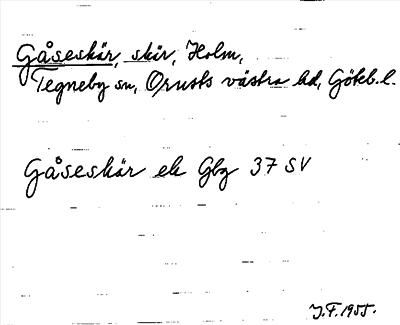 Gåseskär, skär, Holm,
Tegneby sn, Orusts västra hd, Göteb. l.
Gåseskär ek Gbg 37 SV
J.F. 1955.